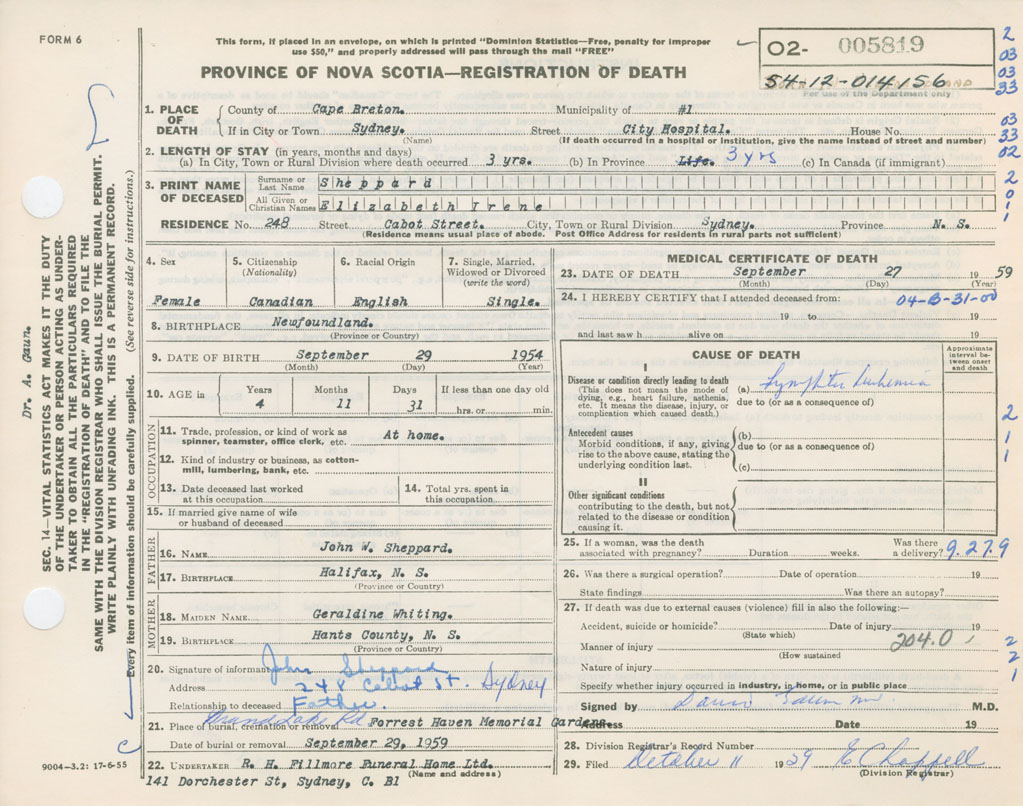 FORM 6
This form, if placed in an envelope, on which is printed "Dominion Statistics—Free, penalty for improper
use $50," and properly addressed will pass through the mail "FREE"
PROVINCE OF NOVA SCOTIA—REGISTRATION OF DEATH
02- 005819
54-12-014156
For use of the Department only
2
03
03
33
03
33
02
2
0
1
1. PLACE OF DEATH
County of Cape Breton. Municipality of #1
If in City or Town Sydney. Street City Hospital. House No.
(Name) (If death occurred in a hospital or institution, give the name instead of street and number)
2. LENGTH OF STAY (in years, months and days)
(a) In City, Town or Rural Division where death occurred 3 yrs. (b) In Province Life. 3 yrs (c) In Canada (if immigrant)
3. PRINT NAME OF DECEASED
Surname or Last Name Sheppard
All Given or Christian Names Elizabeth Irene
RESIDENCE No. 248 Street Cabot Street. City, Town or Rural Division Sydney. Province N. S.
(Residence means usual place of abode. Post Office Address for residents in rural parts not sufficient)
4. Sex
Female
5. Citizenship (Nationality)
Canadian
6. Racial Origin
English
7. Single, Married, Widowed or Divorced (write the word)
Single.
8. BIRTHPLACE Newfoundland.
(Province or Country)
9. DATE OF BIRTH September 29 1954
(Month) (Day) (Year)
10. AGE in
Years 4
Months 11
Days 31
If less than one day old
hrs. or min.
OCCUPATION
11. Trade, profession, or kind of work as spinner, teamster, office clerk, etc. At home.
12. Kind of industry or business, as cotton-mill, lumbering, bank, etc.
13. Date deceased last worked at this occupation
14. Total yrs. spent in this occupation
15. If married give name of wife or husband of deceased
FATHER
16. NAME John W. Sheppard.
17. BIRTHPLACE Halifax, N. S.
(Province or Country)
MOTHER
18. MAIDEN NAME Geraldine Whiting.
19. BIRTHPLACE Hants County, N. S.
(Province or Country)
20. Signature of informant John Sheppard
Address 248 Cabot St. Sydney
Relationship to deceased Father.
Grand Lake Rd
21. Place of burial, cremation or removal Forrest Haven Memorial Gardens.
Date of burial or removal September 29, 1959
22. UNDERTAKER R. H. Fillmore Funeral Home Ltd.
(Name and address)
141 Dorchester St, Sydney, C. B1
9004-3.2: 17-6-55
MEDICAL CERTIFICATE OF DEATH
23. DATE OF DEATH September 27 1959
(Month) (Day) (Year)
24. I HEREBY CERTIFY that I attended deceased from: 04-B-31-00
19 to 19
and last saw h alive on 19
CAUSE OF DEATH
Approximate interval between onset and death
I
Disease or condition directly leading to death
(This does not mean the mode of dying, e.g., heart failure, asthenia, etc. It means the disease, injury, or complication which caused death.)
(a)
due to (or as a consequence of)
Antecedent causes
Morbid conditions, if any, giving rise to the above cause, stating the underlying condition last.
(b)
due to (or as a consequence of)
(c)
II
Other significant conditions
contributing to the death, but not related to the disease or condition causing it.
2
1
1
25. If a woman, was the death associated with pregnancy? Duration weeks. Was there a delivery? 9.27.9
26. Was there a surgical operation? Date of operation 19
State findings Was there an autopsy?
27. If death was due to external causes (violence) fill in also the following:—
Accident, suicide or homicide? Date of injury 19
(State which)
Manner of injury 204.0
(How sustained
Nature of injury
Specify whether injury occurred in industry, in home, or in public place
2
2
1
Signed by M.D.
Address Date 19
28. Division Registrar's Record Number
29. Filed October 11 1959 E Chappell
(Division Registrar)
Dr. A. Gaun.
SEC. 14—VITAL STATISTICS ACT MAKES IT THE DUTY
OF THE UNDERTAKER OR PERSON ACTING AS UNDER-
TAKER TO OBTAIN ALL THE PARTICULARS REQUIRED
IN THE "REGISTRATION OF DEATH" AND TO FILE THE
SAME WITH THE DIVISION REGISTRAR WHO SHALL ISSUE THE BURIAL PERMIT.
WRITE PLAINLY WITH UNFADING INK. THIS IS A PERMANENT RECORD.
Every item of information should be carefully supplied. (See reverse side for instructions.)